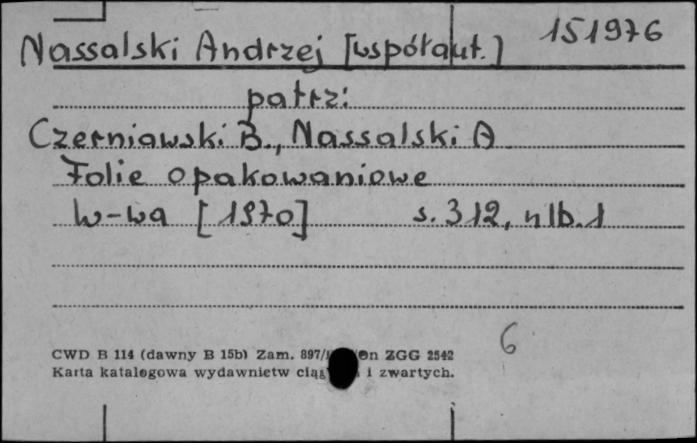 Nassalski Andrzej [współaut.] 151976
patrz:
Czerniawski B., Nassalski A
Folie opakowaniowe
W-wa [1970] s. 312, nlb. 1
6
CWD B 114 (dawny B 15b) Zam. 897/ ZGG 2542
Karta katalogowa wydawnictw i zwartych.